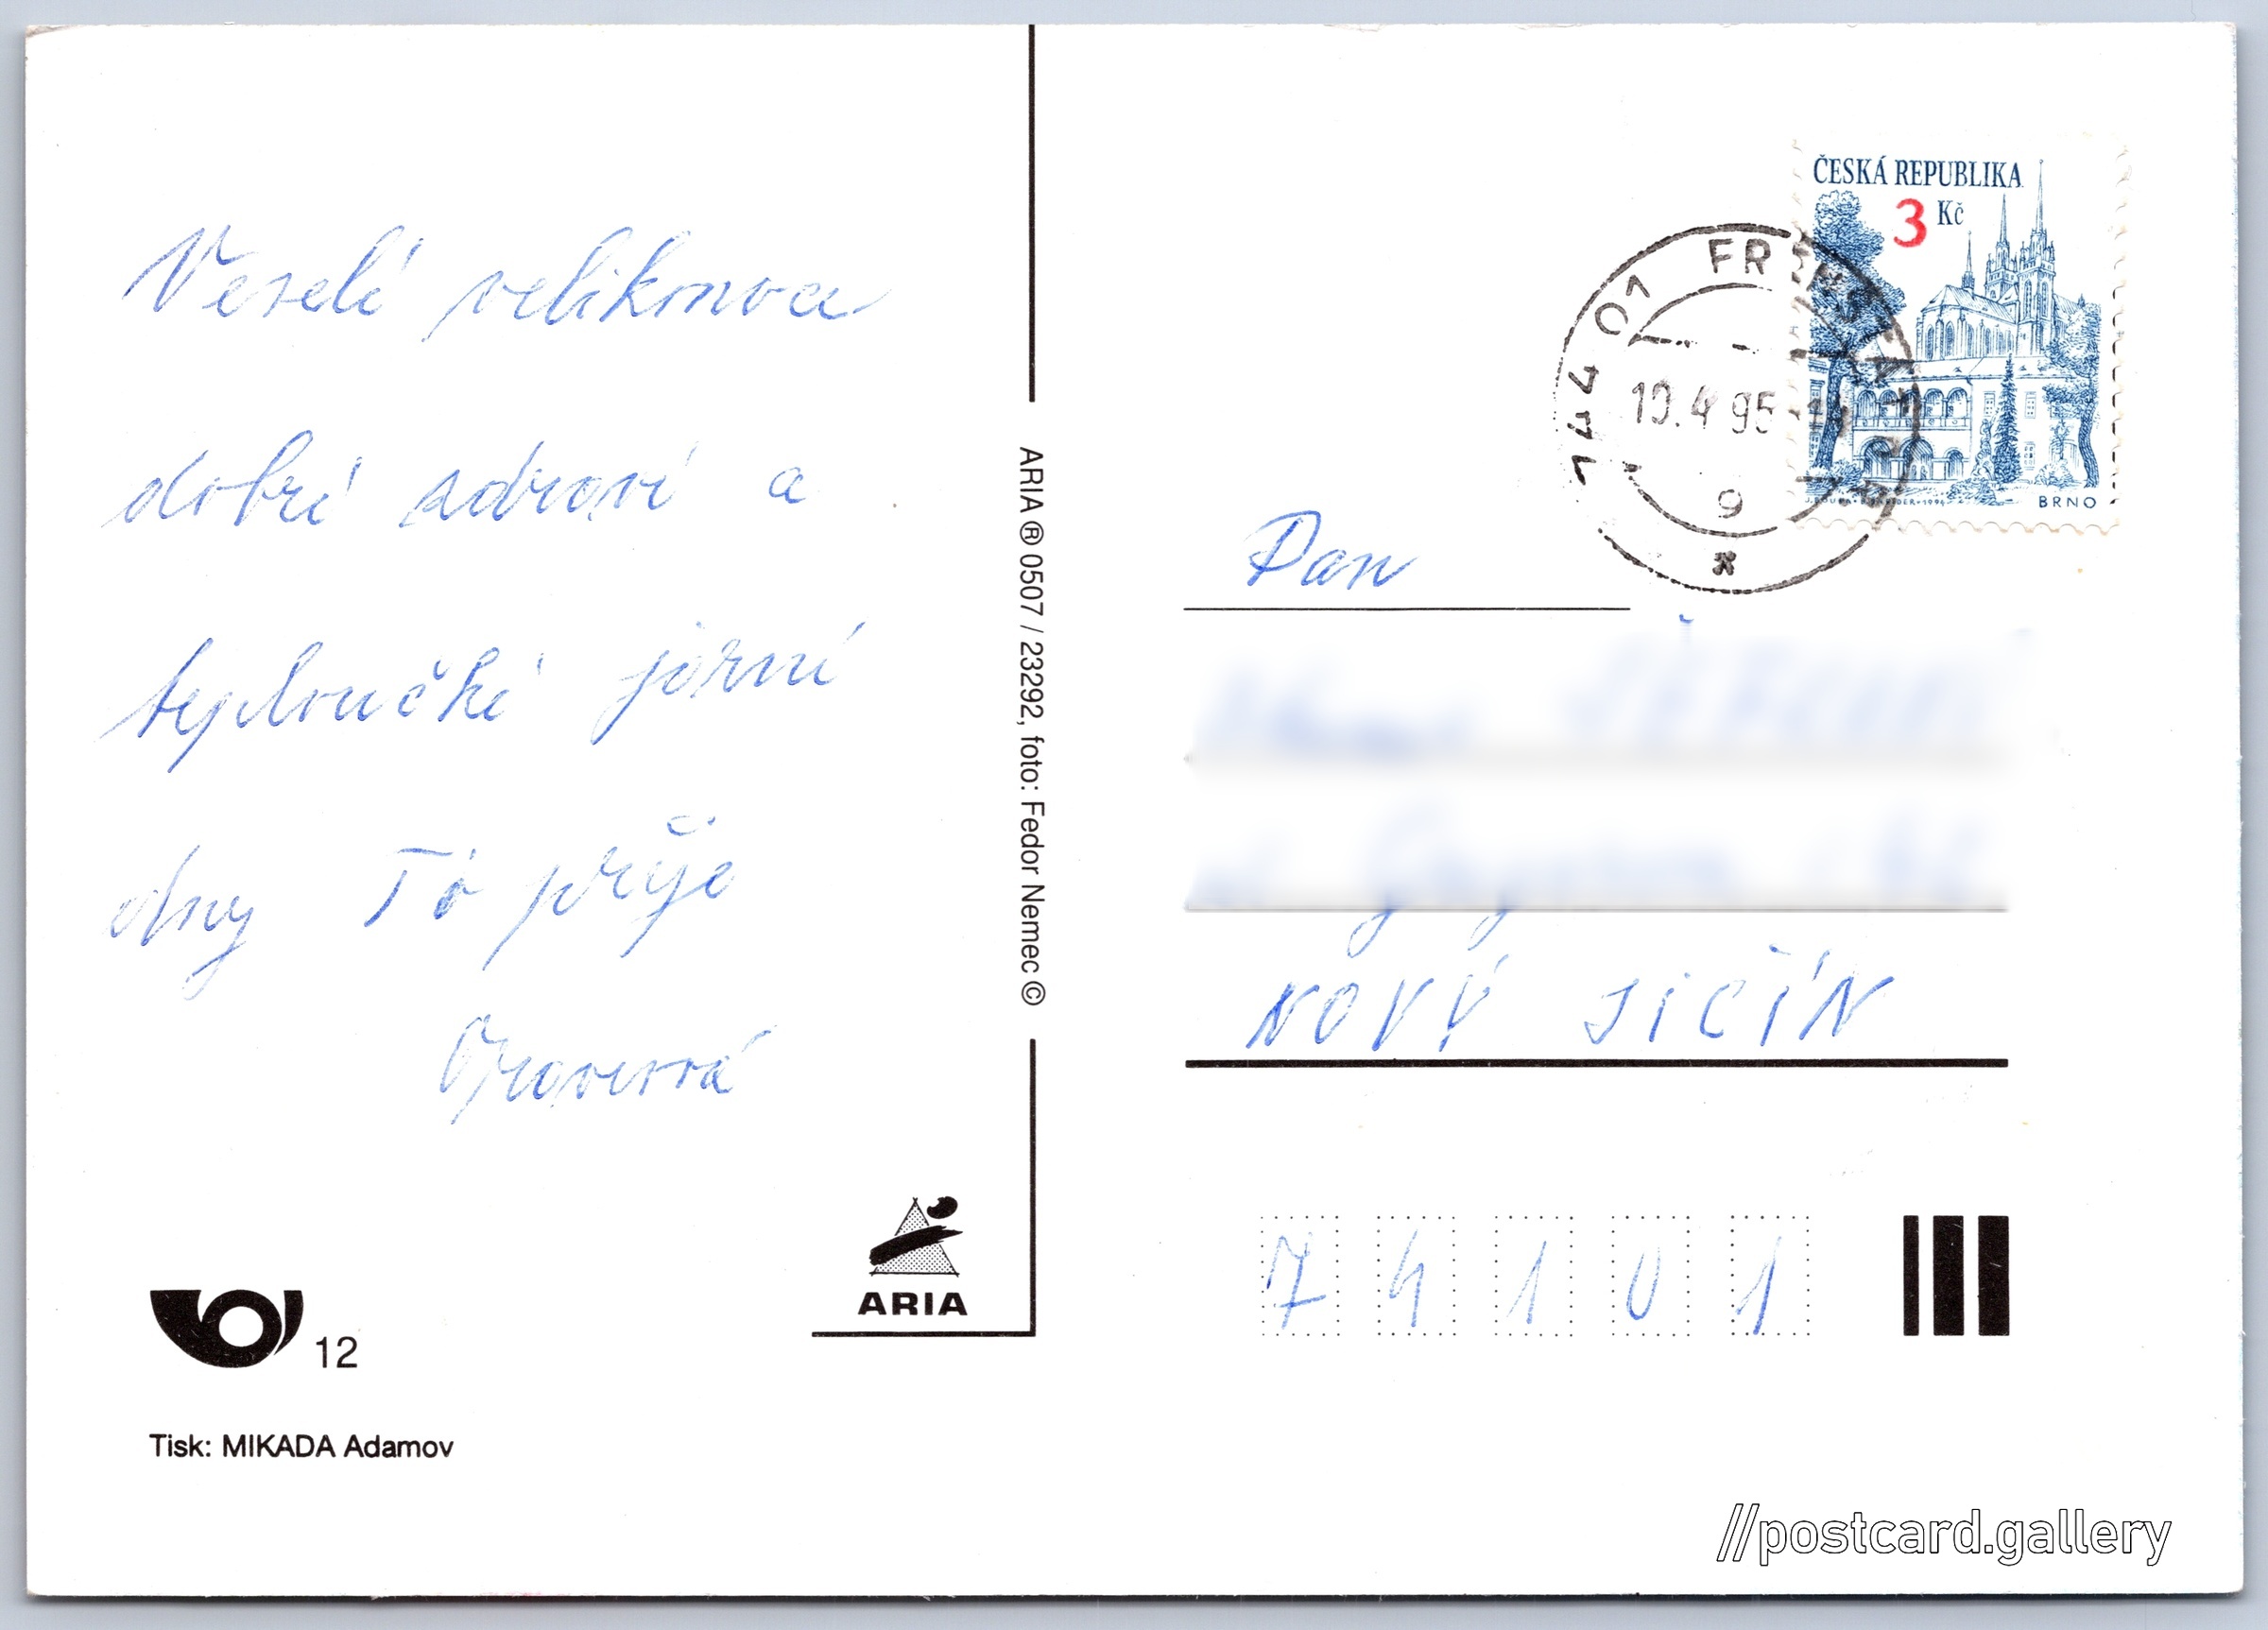 Veselé velikonoce
dobré zdraví a
teploučké jarní
dny Tó přeje
ARIA ® 0507 / 23292, foto: Fedor Nemec ©
ARIA
12
Tisk: MIKADA Adamov
ČESKÁ REPUBLIKA
3 Kč
BRNO
744 01 FRENŠTÁT
10.4.95
9
Pan
NOVÝ JIČÍN
74101
//postcard.gallery